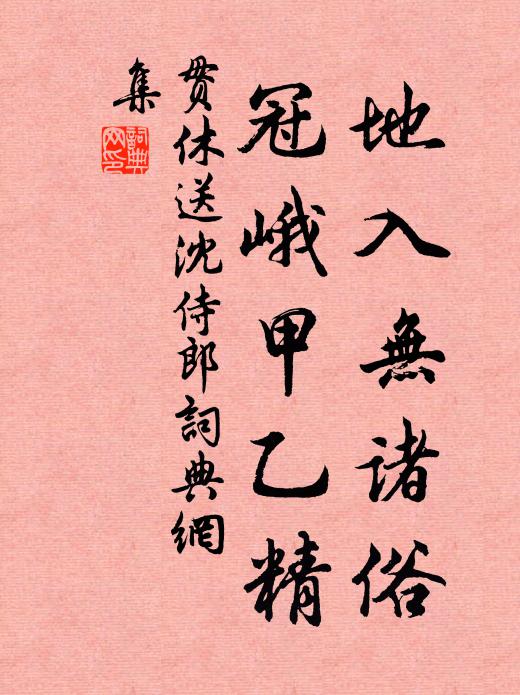 地入無诸俗
冠峨甲乙精
贯休送沈侍郎詞典網
集
詞典網印